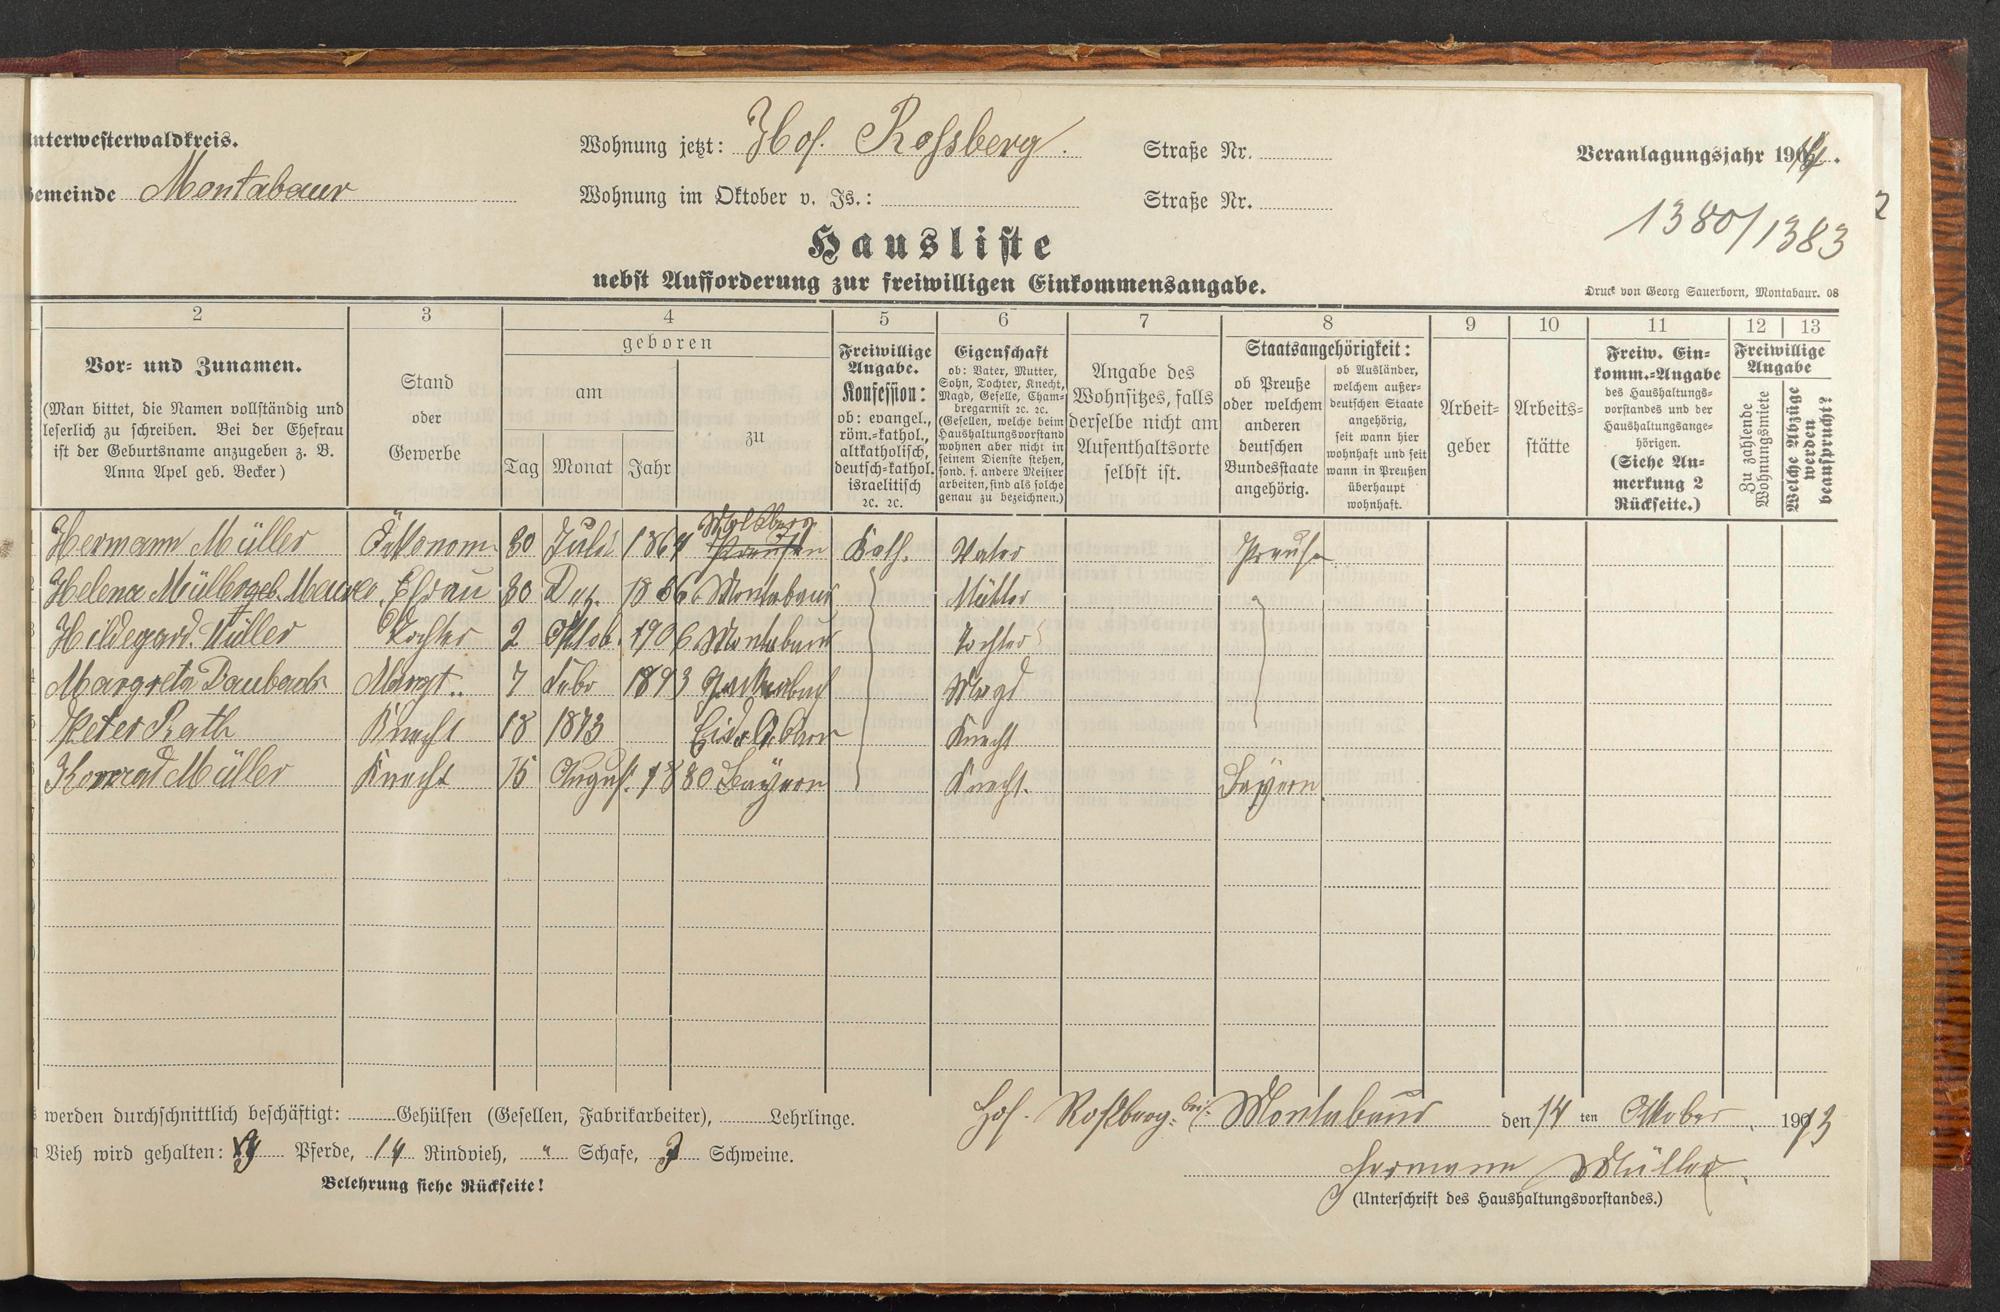 Unterwesterwaldkreis.
Gemeinde Montabaur
Wohnung jetzt: Hof. Roßberg.
Straße Nr.
Wohnung im Oktober v. Js.:
Straße Nr.
Veranlagungsjahr 1914.
1380/1383
Hausliste
nebst Aufforderung zur freiwilligen Einkommensangabe.
Druck von Georg Sauerborn, Montabaur. 08
2 3 4 5 6 7 8 9 10 11 12 13
Vor- und Zunamen.
(Man bittet, die Namen vollständig und
leserlich zu schreiben. Bei der Ehefrau
ist der Geburtsname anzugeben z. B.
Anna Apel geb. Becker)
Stand
oder
Gewerbe
geboren
am
zu
Tag Monat Jahr
Freiwillige
Angabe.
Konfession:
ob: evangel.,
röm.-kathol.,
altkatholisch,
deutsch-kathol.
israelitisch
2c. 2c.
Eigenschaft
ob: Vater, Mutter,
Sohn, Tochter, Knecht,
Magd, Geselle, Cham-
bregarnist 2c. 2c.
(Gesellen, welche beim
Haushaltungsvorstand
wohnen aber nicht in
seinem Dienste stehen,
sond. f. andere Meister
arbeiten, sind als solche
genau zu bezeichnen.)
Angabe des
Wohnsitzes, falls
derselbe nicht am
Aufenthaltsorte
selbst ist.
Staatsangehörigkeit:
ob Preuße
oder welchem
anderen
deutschen
Bundesstaate
angehörig.
ob Ausländer,
welchem außer-
deutschen Staate
angehörig,
seit wann hier
wohnhaft und seit
wann in Preußen
überhaupt
wohnhaft.
Arbeit-
geber
Arbeits-
stätte
Freiw. Ein-
komm.-Angabe
des Haushaltungs-
vorstandes und der
Haushaltungsange-
hörigen.
(Siehe An-
merkung 2
Rückseite.)
Freiwillige
Angabe
Zu zahlende
Wohnungsmiete
Welche Abzüge
werden
beansprucht?
Hermann Müller Ökonom 30 Juli 1864 Molsberg Kath. Vater
Helena Müller geb. Ehfrau 30 Dez. 1866 Montabaur Mutter
Hildegard Müller Tochter 2 Oktob. 1906 Montabaur Tochter
Margreta Daubach Magd 7 Febr 1893 Magd
Peter Rath Knecht 18 1873 Knecht
Konrad Müller Knecht 15 August 1880 Bayern Knecht. Bayern.
werden durchschnittlich beschäftigt: Gehülfen (Gesellen, Fabrikarbeiter), Lehrlinge.
Vieh wird gehalten: Pferde, 14 Rindvieh, " Schafe, Schweine.
Belehrung siehe Rückseite!
Hof. Roßberg bei Montabaur den 14 ten Oktober 1913
Hermann Müller.
(Unterschrift des Haushaltungsvorstandes.)